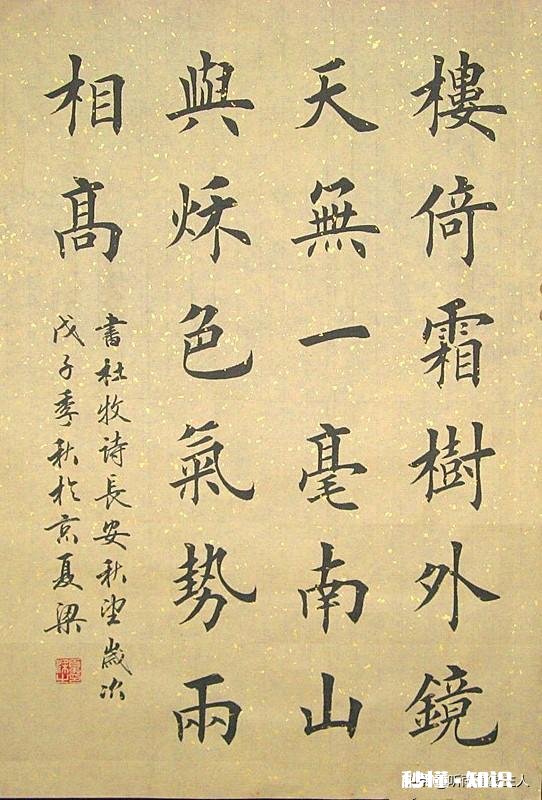 樓倚霜樹外鏡
天無一毫南山
與秌色氣勢兩
相高
書杜牧诗長安秋望歲次
戊子季秋於京夏梁
秒懂·知识